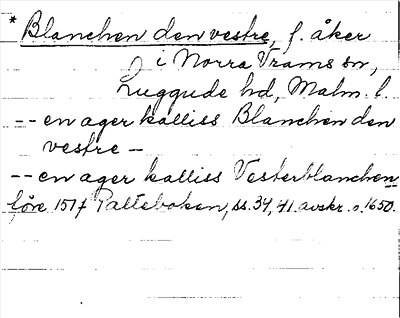 * Blanchen den vestre, f. åker
i Norra Vrams sn,
Luggude hd, Malm. l.
-- en ager kalliss Blanchen den
vestre —
-- en ager kalliss Vesterblanchen
före 1517 Palteboken, ss. 34, 41. avskr. o. 1650.